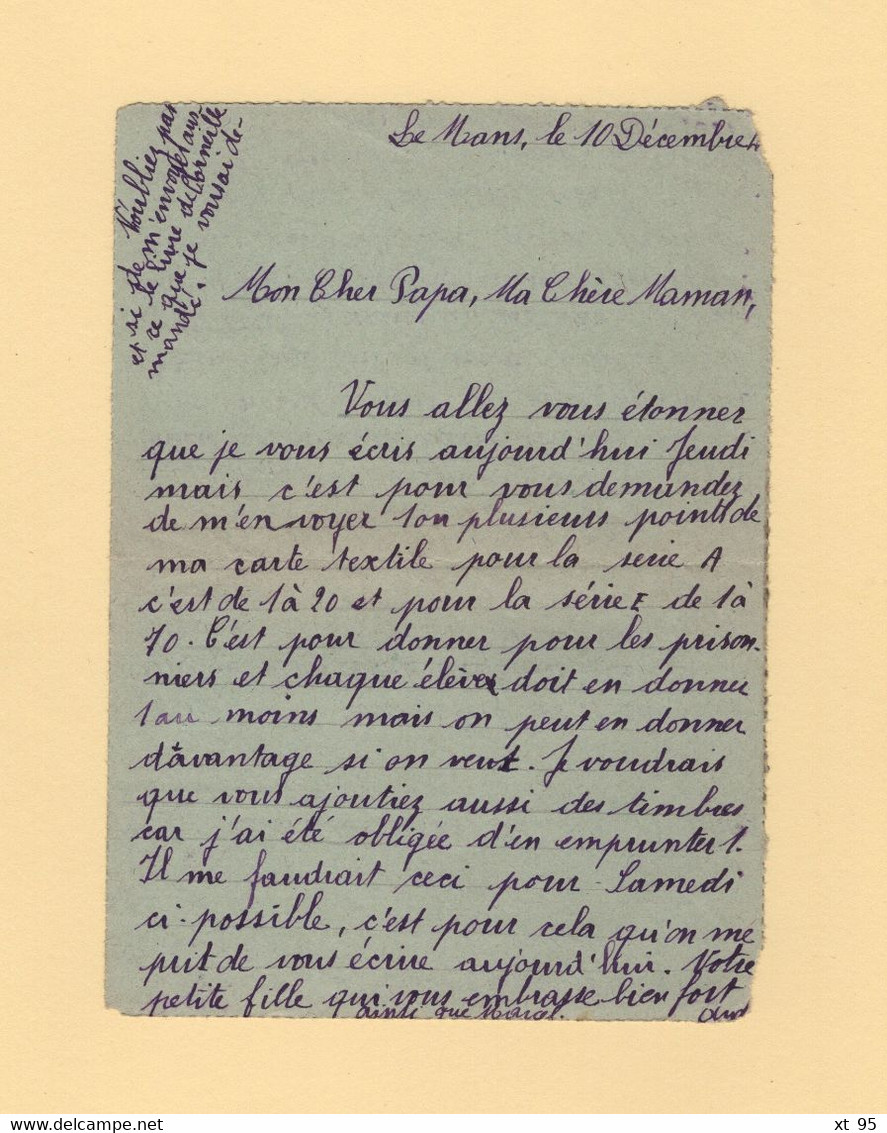 Le Mans, le 10 Décembre
N'oubliez pas
de m'envoyer aus-
si le livre de Corneille
et ce que je vous ai de-
mandé.
Mon Cher Papa, Ma Chère Maman,
Vous allez vous étonner
que je vous écris aujourd'hui Jeudi
mais c'est pour vous demander
de m'envoyer 1 ou plusieurs points de
ma carte textile pour la serie A
c'est de 1 à 20 et pour la série E de 1 à
70. C'est pour donner pour les prison-
niers et chaque élève doit en donner
1 au moins mais on peut en donner
davantage si on veut. Je voudrais
que vous ajoutiez aussi des timbres
car j'ai été obligée d'en emprunter 1.
Il me faudrait ceci pour Samedi
ci-possible, c'est pour cela qu'on me
prit de vous écrire aujourd'hui. Votre
petite fille qui vous embrasse bien fort
ainsi que Marcel.
delcampe.net
xt 95